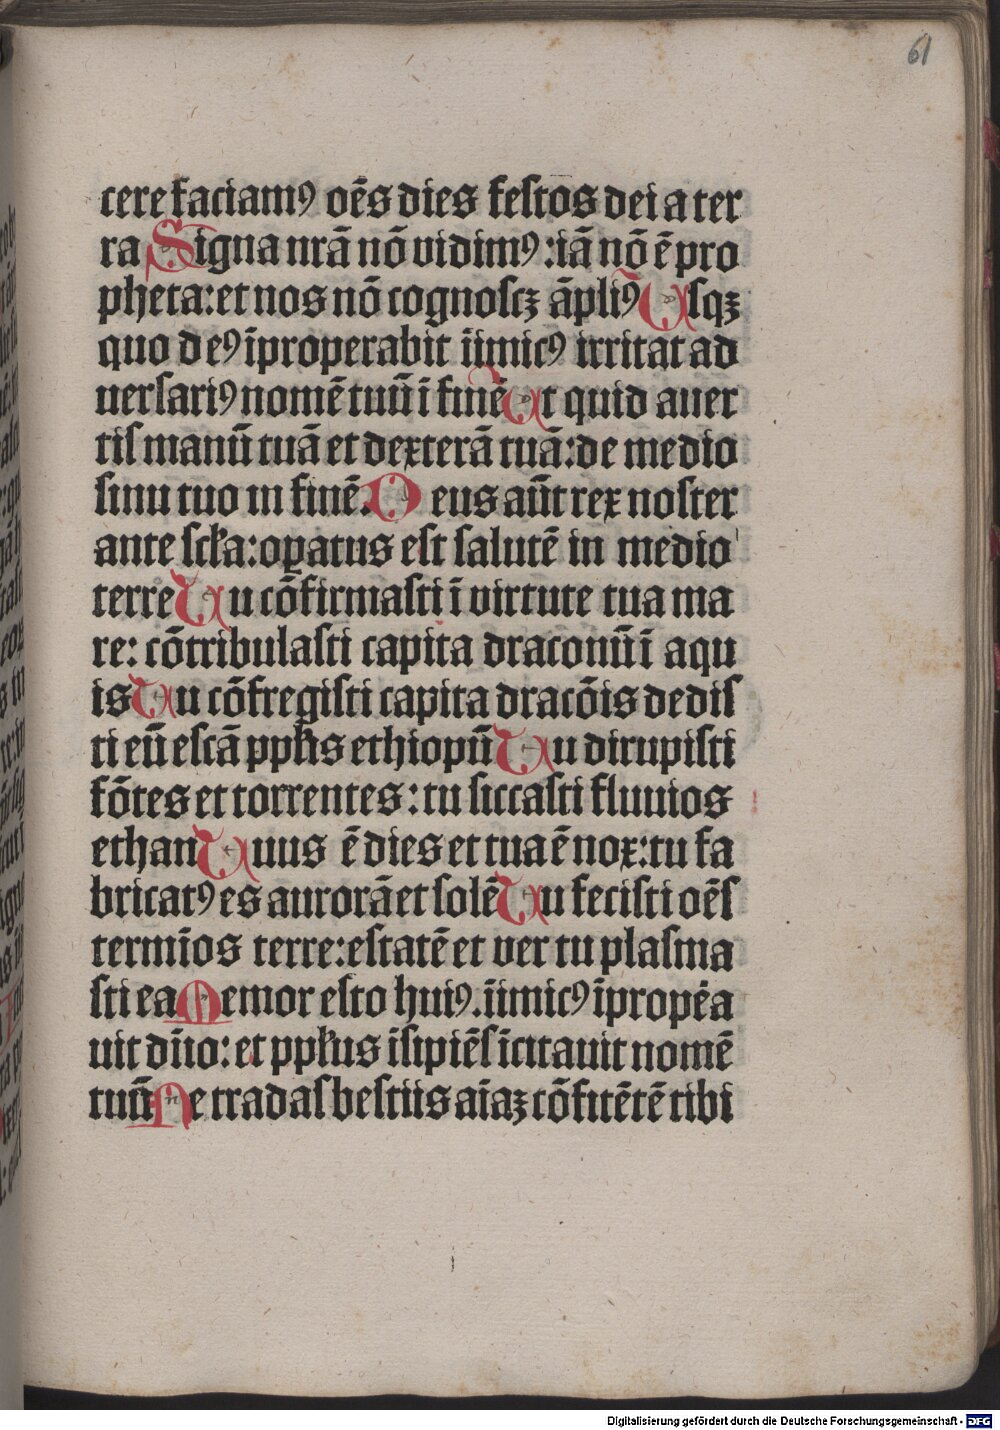 61
cere faciamꝰ oēs dies festos dei a ter
ra Signa nrā nō vidimꝰ : iā nō ē pro
pheta : et nos nō cognoscꝫ āpliꝰ Usqꝫ
quo deꝰ īproperabit iīmicꝰ irritat ad
uersariꝰ nomē tuū ī finē Ut quid auer
tis manū tuā et dexterā tuā : de medio
sinu tuo in finē. Deus aūt rex noster
ante scła : oꝑatus est salutē in medio
terre Tu cōfirmasti ī virtute tua ma
re : cōtribulasti capita draconū ī aqu
is Tu cōfregisti capita dracōis dedis
ti eū escā ppłis ethiopū Tu dirupisti
fōtes et torrentes : tu siccasti fluuios
ethan Tuus ē dies et tua ē nox : tu fa
bricatꝰ es aurorā et solē Tu fecisti oēs
termīos terre : estatē et ver tu plasma
sti ea Memor esto huiꝰ. iīmicꝰ īpropēa
uit dūo : et ppłus īsipiēs īcitauit nomē
tuū Ne tradas bestiis aīaꝫ cōfitētē tibi
Digitalisierung gefördert durch die Deutsche Forschungsgemeinschaft - DFG